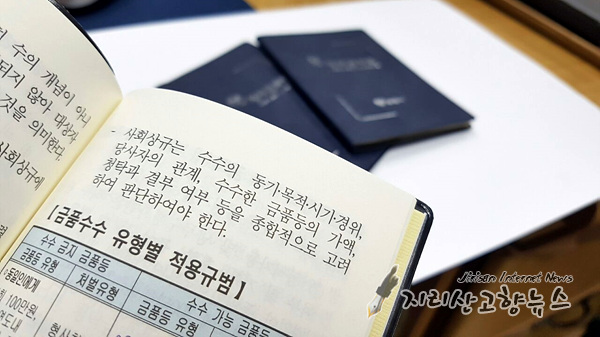 의 수의 개념이 아니
되지 않아 대상자
것을 의미한다.
사회상규에
- 사회상규는 수수의 동기·목적·시기·경위,
당사자의 관계, 수수한 금품등의 가액,
청탁과 결부 여부 등을 종합적으로 고려
하여 판단하여야 한다.
【금품수수 유형별 적용규범】
수수 금지 금품등
수수 가능 금품등
금품등 유형
처벌유형
금품등 유형
동일인에게
100만원
도내
형사처
Jirisan Internet News
지리산고향뉴스